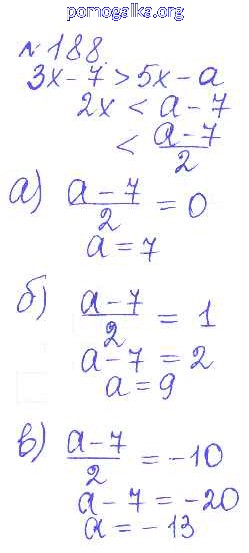 pomogalka.org
№188.
3x-7>5x-a
2x<a-7
<(a-7)/2
а) (a-7)/2=0
a=7
б) (a-7)/2=1
a-7=2
a=9
в) (a-7)/2=-10
a-7=-20
a=-13